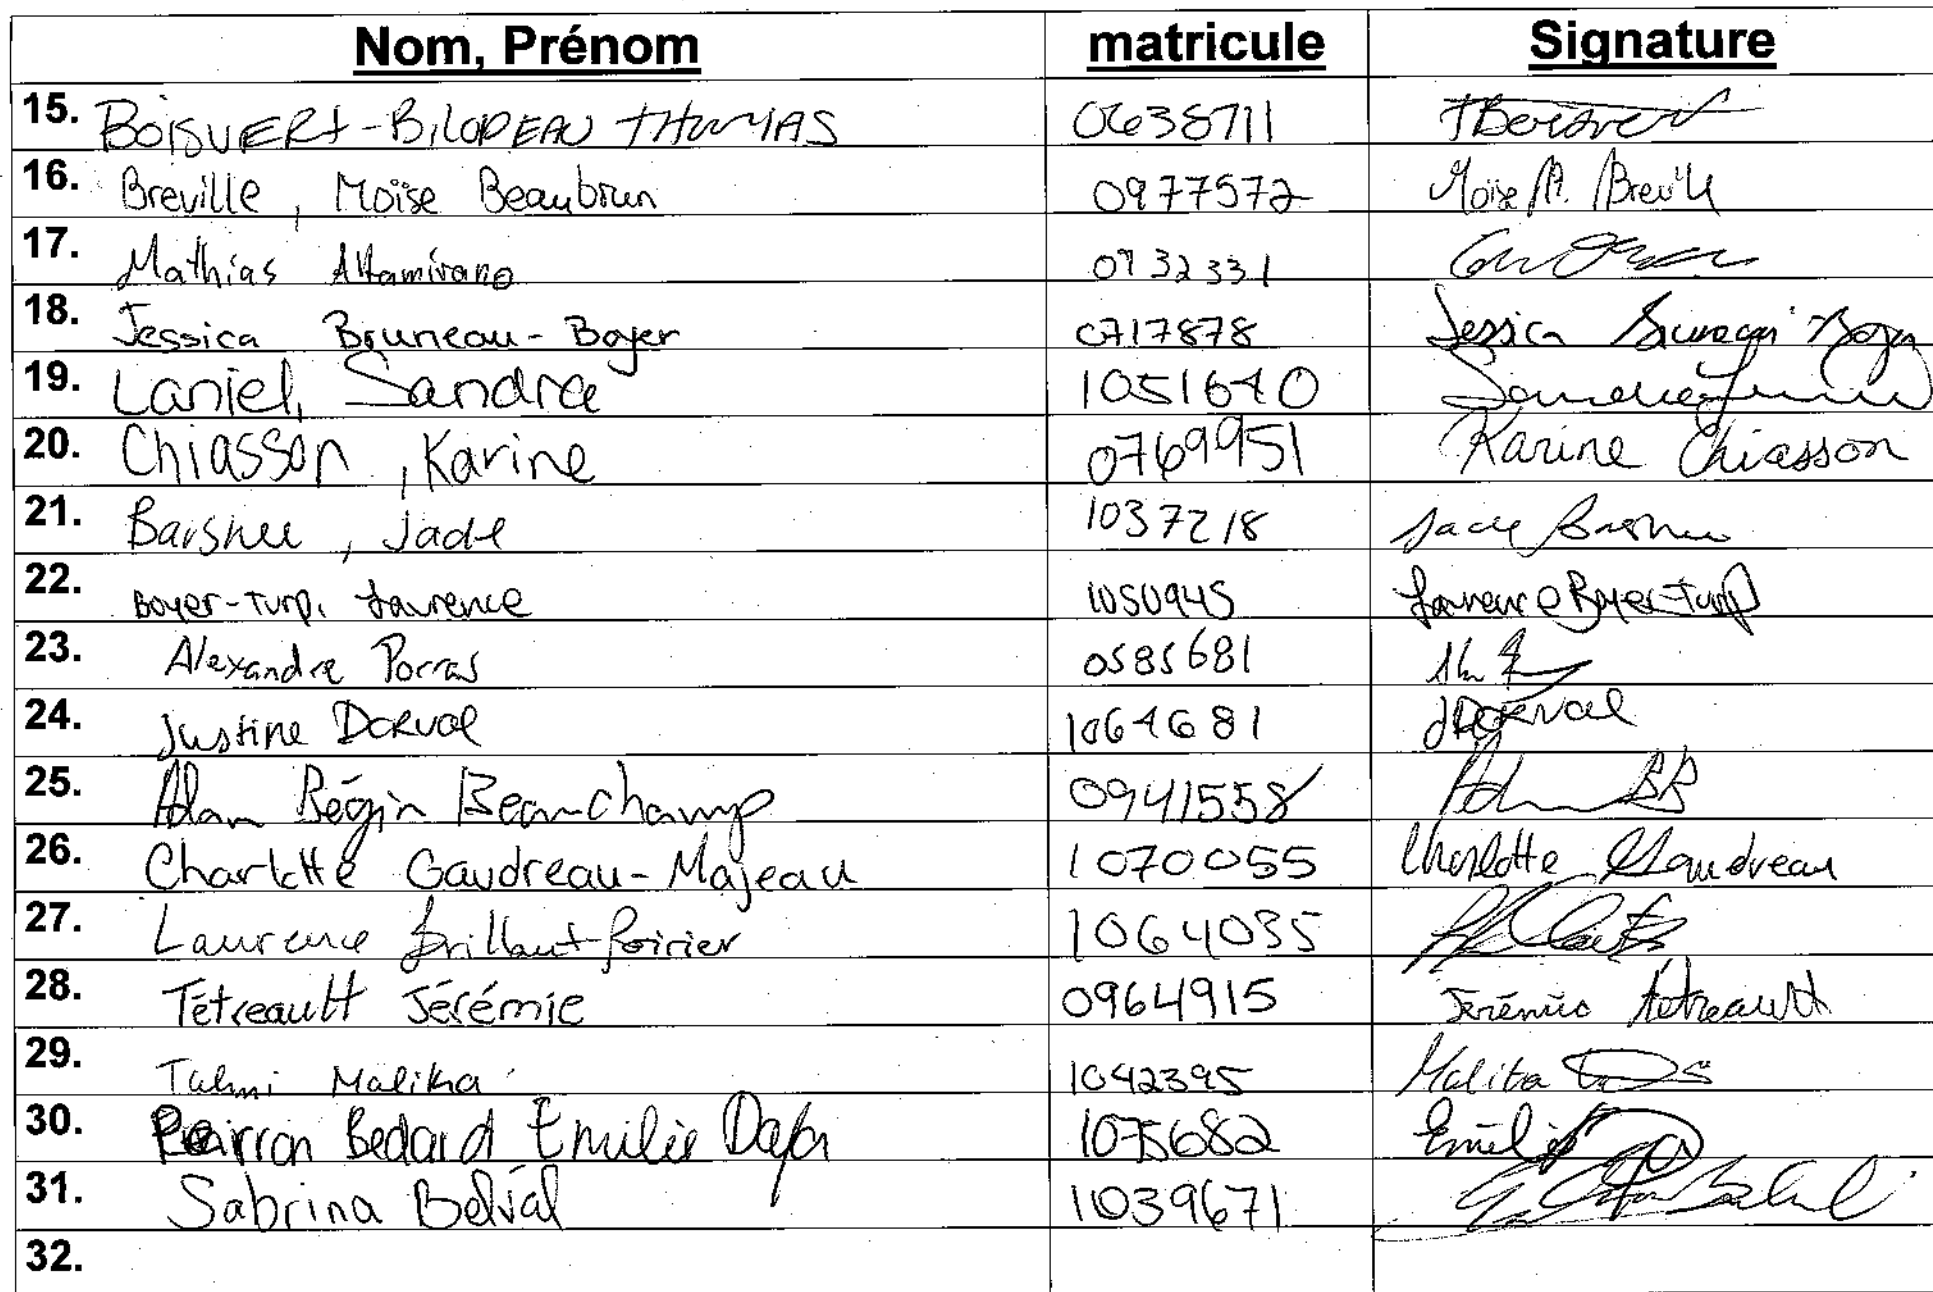 Nom, Prénom matricule Signature
15. BOISVERT-BILODEAU THOMAS 0638711 TBoisvert
16. Breville, Moïse Beaubrun 0977572 Moïse B. Breville
17. Mathias Altamirano 0932331
18. Jessica Bruneau-Boyer 0717878 Jessica Bruneau-Boyer
19. Laniel, Sandra 1051640 Sandra
20. Chiasson, Karine 0769951 Karine Chiasson
21. Jade 1037218 Jade
22. Boyer-Turp, Laurence 1050945 Laurence Boyer-Turp
23. Alexandre Porras 0585681
24. Justine Dorval 1064681 JDORVAL
25. Adam Bégin Beauchamp 0941558 Adam BB
26. Charlotte Gaudreau-Majeau 1070055 Charlotte Gaudreau
27. Laurence Brillant-Poirier 1064035
28. Tétreault Jérémie 0964915 Jérémie Tétreault
29. Malika 1042395 Malika
30. Bedard Emilie 1075682 Emilie
31. Sabrina Belval 1039671
32.